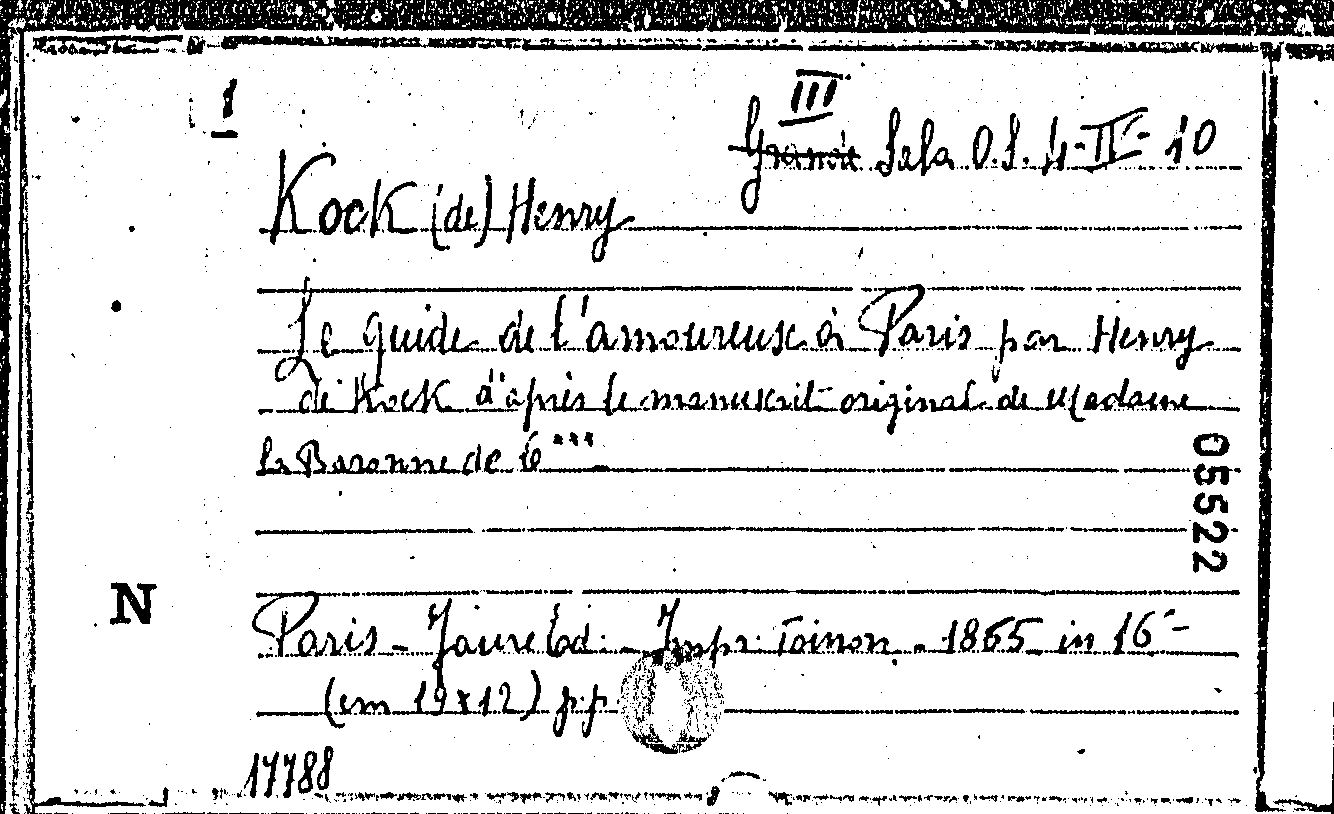 1
III
Grande Sala O.S. 4-II-10
Kock (de) Henry
Le guide de l'amoureuse à Paris par Henry
de Kock d'après le manuscrit original de Madame
la Baronne de C***
05522
N
Paris - Faure Ed. - Impr. Toinon - 1865 in 16 -
(cm 19x12) p.p.
17788